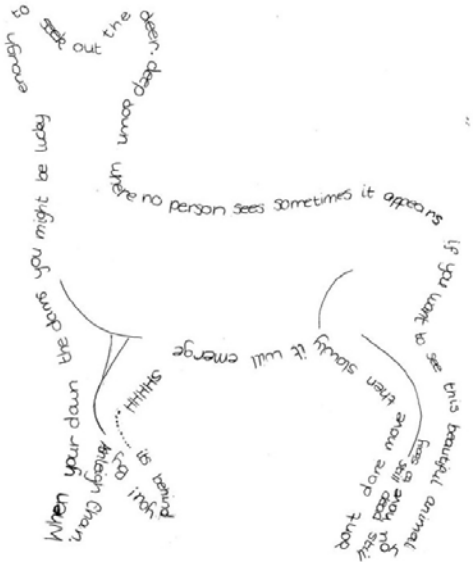 When your down the dams you might be lucky enough to
seek out the deer. deep down
where no person sees sometimes it appears
if you want to see this beautiful animal
still
dead
dont dare move then slowly it will emerge
SHHHH...... its behind
you!
By
Chan.